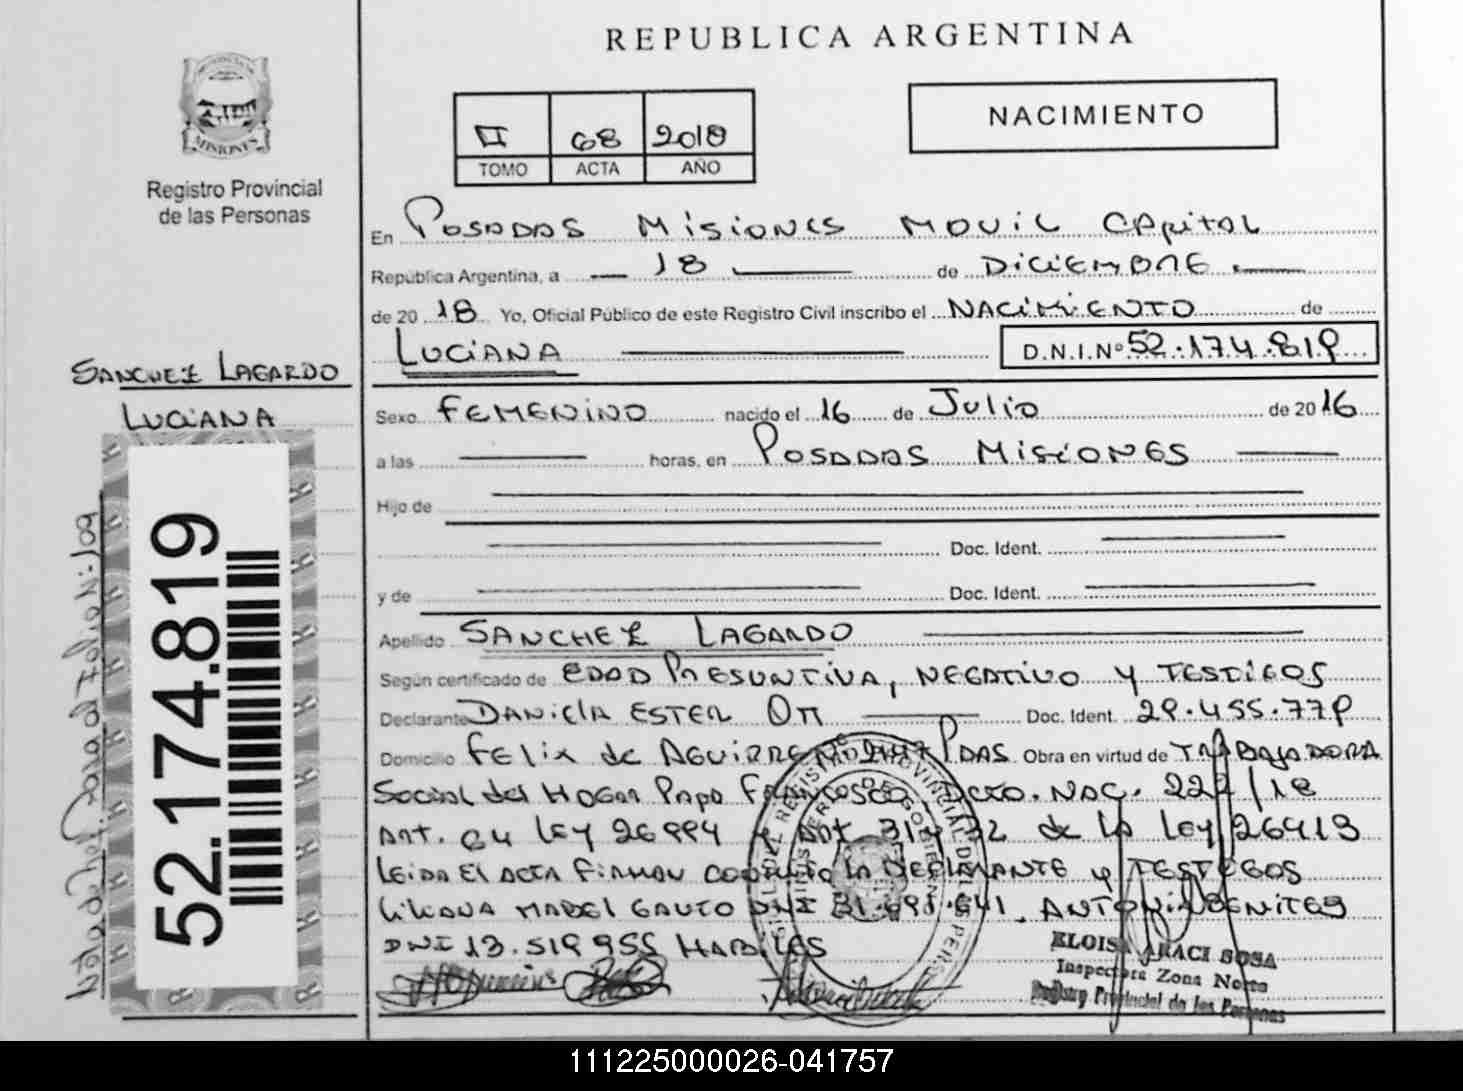 REPUBLICA ARGENTINA
MISIONES
Registro Provincial
de las Personas
II 68 2018
TOMO ACTA AÑO
NACIMIENTO
En Posadas Misiones Movil Capital
Republica Argentina, a 18 de Diciembre
de 2018 Yo, Oficial Público de este Registro Civil inscribo el Nacimiento de
Luciana D.N.I.Nº 52.174.819
Sanchez Lagardo
Luciana
Sexo Femenino nacido el 16 de Julio de 2016
a las horas, en Posadas Misiones
Hijo de
Doc. Ident.
y de Doc. Ident.
Apellido Sanchez Lagardo
Según certificado de Edad Presuntiva, Negativo y Testigos
Declarante Daniela Ester Ott Doc. Ident. 29.455.779
Domicilio Felix de Aguirre Pdas Obra en virtud de Trabajadora
Social del Hogar Papa Francisco Dcto. Nac. 222/18
Art. 84 Ley 26994 y Art 31 y 32 de la Ley 26413
Leida el acta firman la Declarante y Testigos
Liliana Mabel Gauto DNI Antonia Benitez
DNI 13.519955 Habiles
ELOISA ARACI SOSA
Inspectora Zona Norte
Registro Provincial de las Personas
52.174.819
111225000026-041757